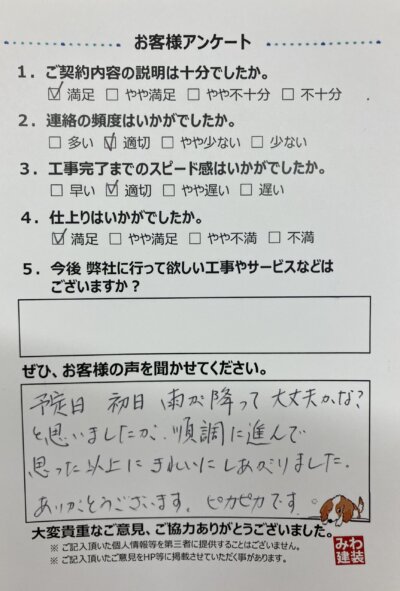 お客様アンケート
1．ご契約内容の説明は十分でしたか。
☑ 満足 □ やや満足 □ やや不十分 □ 不十分
2．連絡の頻度はいかがでしたか。
□ 多い ☑ 適切 □ やや少ない □ 少ない
3．工事完了までのスピード感はいかがでしたか。
□ 早い ☑ 適切 □ やや遅い □ 遅い
4．仕上りはいかがでしたか。
☑ 満足 □ やや満足 □ やや不満 □ 不満
5．今後 弊社に行って欲しい工事やサービスなどは
ございますか？
ぜひ、お客様の声を聞かせてください。
予定日 初日 雨が降って 大丈夫かな?
と思いましたが、順調に進んで
思った以上に きれいに しあがりました。
ありがとうございます。ピカピカです。
大変貴重なご意見、ご協力ありがとうございました。
※ ご記入頂いた個人情報等を第三者に提供することはございません。
※ ご記入頂いたご意見をHP等に掲載させていただく事があります。
みわ
建装